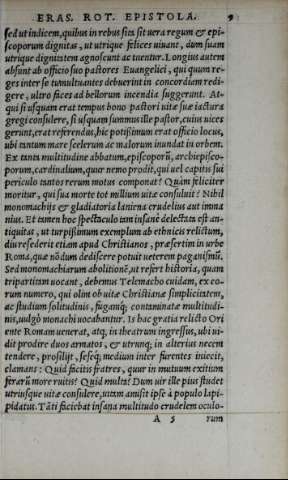 ERAS. ROT. EPISTOLA. 9
sed ut indicem, quibus in rebus sita sit uera regum & epi-
scoporum dignitas, ut utrique felices uiuant, dum suam
utrique dignitatem agnoscunt ac tuentur. Longius autem
absunt ab officio suo pastores Euangelici, qui quum re-
ges inter se tumultuantes debuerint in concordiam redi-
gere, ultro faces ad bellorum incendia suggerunt. At-
qui si usquam erat tempus bono pastori uitæ suæ iactura
gregi consulere, si usquam summus ille pastor, cuius uices
gerunt, erat referendus, hic potißimum erat officio locus,
ubi tantum mare scelerum ac malorum inundat in orbem.
Ex tanta multitudine abbatum, episcoporū, archiepisco-
porum, cardinalium, quur nemo prodit, qui uel capitis sui
periculo tantos rerum motus componat? Quàm feliciter
moritur, qui sua morte tot millium uitæ consuluit! Nihil
monomachijs & gladiatoria laniena crudelius aut imma
nius. Et tamen hoc spectaculo tam insanè delectata est an-
tiquitas, ut turpißimum exemplum ab ethnicis relictum,
diu resederit etiam apud Christianos, præsertim in urbe
Roma, quæ nōdum dedisccre potuit ueterem paganismū.
Sed monomachiarum abolitionē, ut refert historia, quam
tripartitam uocant, debemus Telemacho cuidam, ex eo-
rum numero, qui olim ob uitæ Christianæ simplicitatem,
ac studium solitudinis, fugamq; contaminatæ multitudi-
nis, uulgò monachi uocabantur. Is hac gratia relicto Ori
ente Romam uenerat, atq, in theatrum ingressus, ubi ui-
dit prodire duos armatos, & utrunq; in alterius necem
tendere, prosilijt, seseq; medium inter furentes iniecit,
clamans: Quid facitis fratres, quur in mutuum exitium
ferarū more ruitis? Quid multa? Dum uir ille pius studet
utriusque uitæ consulere, uitam amisit ipse à populo lapi-
pidatus. Tāti faciebat insana multitudo crudelem oculo-
A 5 rum